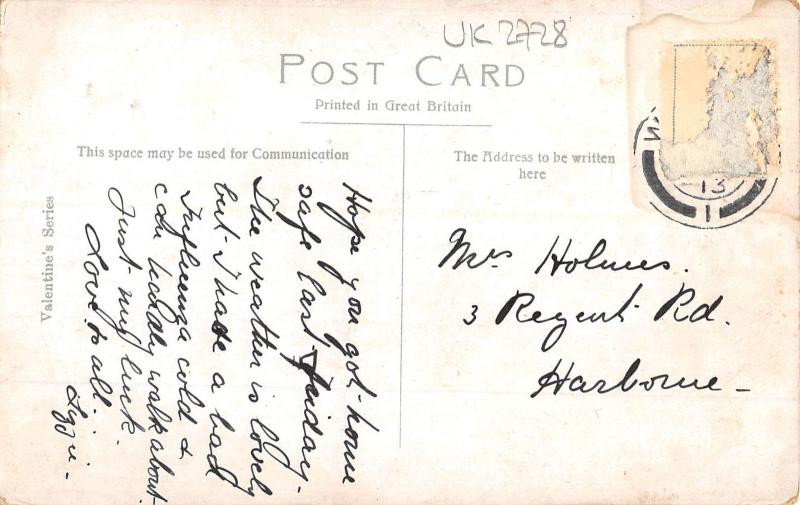 UK 2728
POST CARD
Printed in Great Britain
This space may be used for Communication
The Address to be written
here
Valentine's Series
Hope you got home
safe last Friday.
The weather is lovely
but I have a bad
Influenza cold &
can hardly walk about
Just my luck.
Love to all.
Lizzie.
Mrs Holmes.
3 Regent Rd.
Harborne
13
1